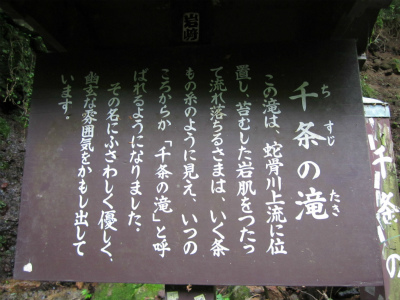 千条の滝
ちすじ たき
この滝は、蛇骨川上流に位
置し、苔むした岩肌をつたっ
て流れ落ちるさまは、いく条
もの糸のように見え、いつの
ころからか「千条の滝」と呼
ばれるようになりました。
その名にふさわしく優しく、
幽玄な雰囲気をかもし出して
います。
千条の